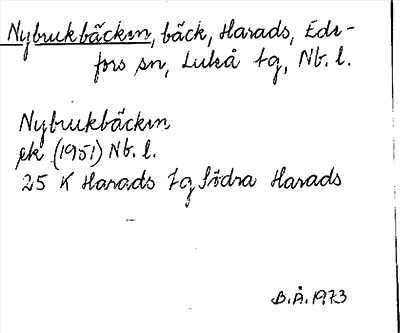 Nybrukbäcken, bäck, Harads, Eds-
fors sn, Luleå tg, Nb. l.
Nybrukbäcken
ek (1951) Nb. l.
25 K Harads tg Södra Harads
B.Å. 1973